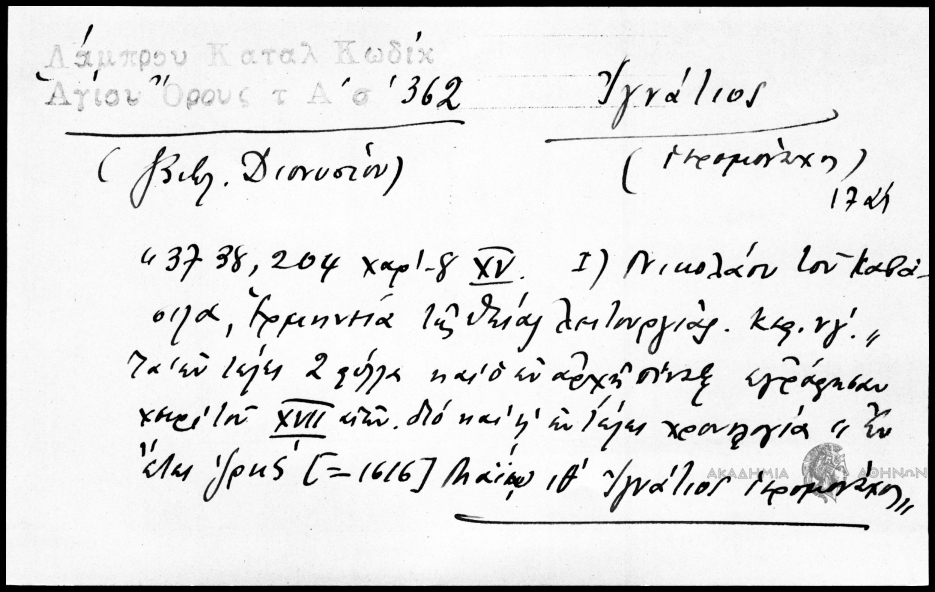 Λάμπρου Καταλ Κωδίκ
Ἁγίου Ὄρους τ Α' σ' 362
(Βιβλ. Διονυσίου)
Ἰγνάτιος
(ἱερομόναχος)
17 αἰ
"3738, 204 χαρτ. 8 XV. I) Νικολάου τοῦ Καβά-
σιλα, Ἑρμηνεία τῆς θείας λειτουργίας. Κεφ. νγ'."
Τὰ ἐν τέλει 2 φύλλα καὶ ὁ ἐν ἀρχῇ πίναξ ἐγράφησαν
χειρὶ τοῦ XVII αἰῶν. διὸ καὶ ἡ ἐν τέλει χρονολογία "Ἐν
ἔτει ζρκδ' [=1616] Μαΐου ιθ' Ἰγνάτιος ἱερομόναχος"
ΑΚΑΔΗΜΙΑ ΑΘΗΝΩΝ